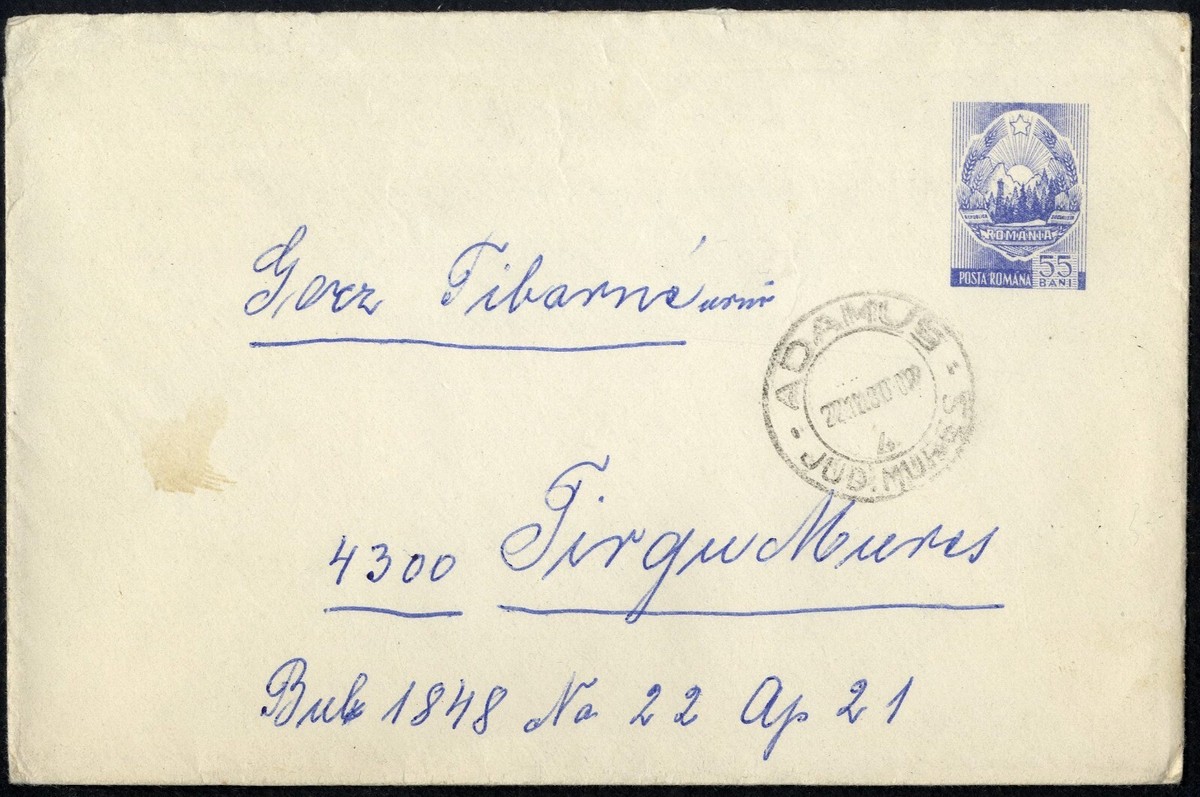 REPUBLICA SOCIALISTA
ROMANIA
POSTA ROMANA 55 BANI
Gocz Tiborné
ADAMUS
JUD. MURES
4300 Tirgu Mures
Bul 1848 No 22 Ap 21